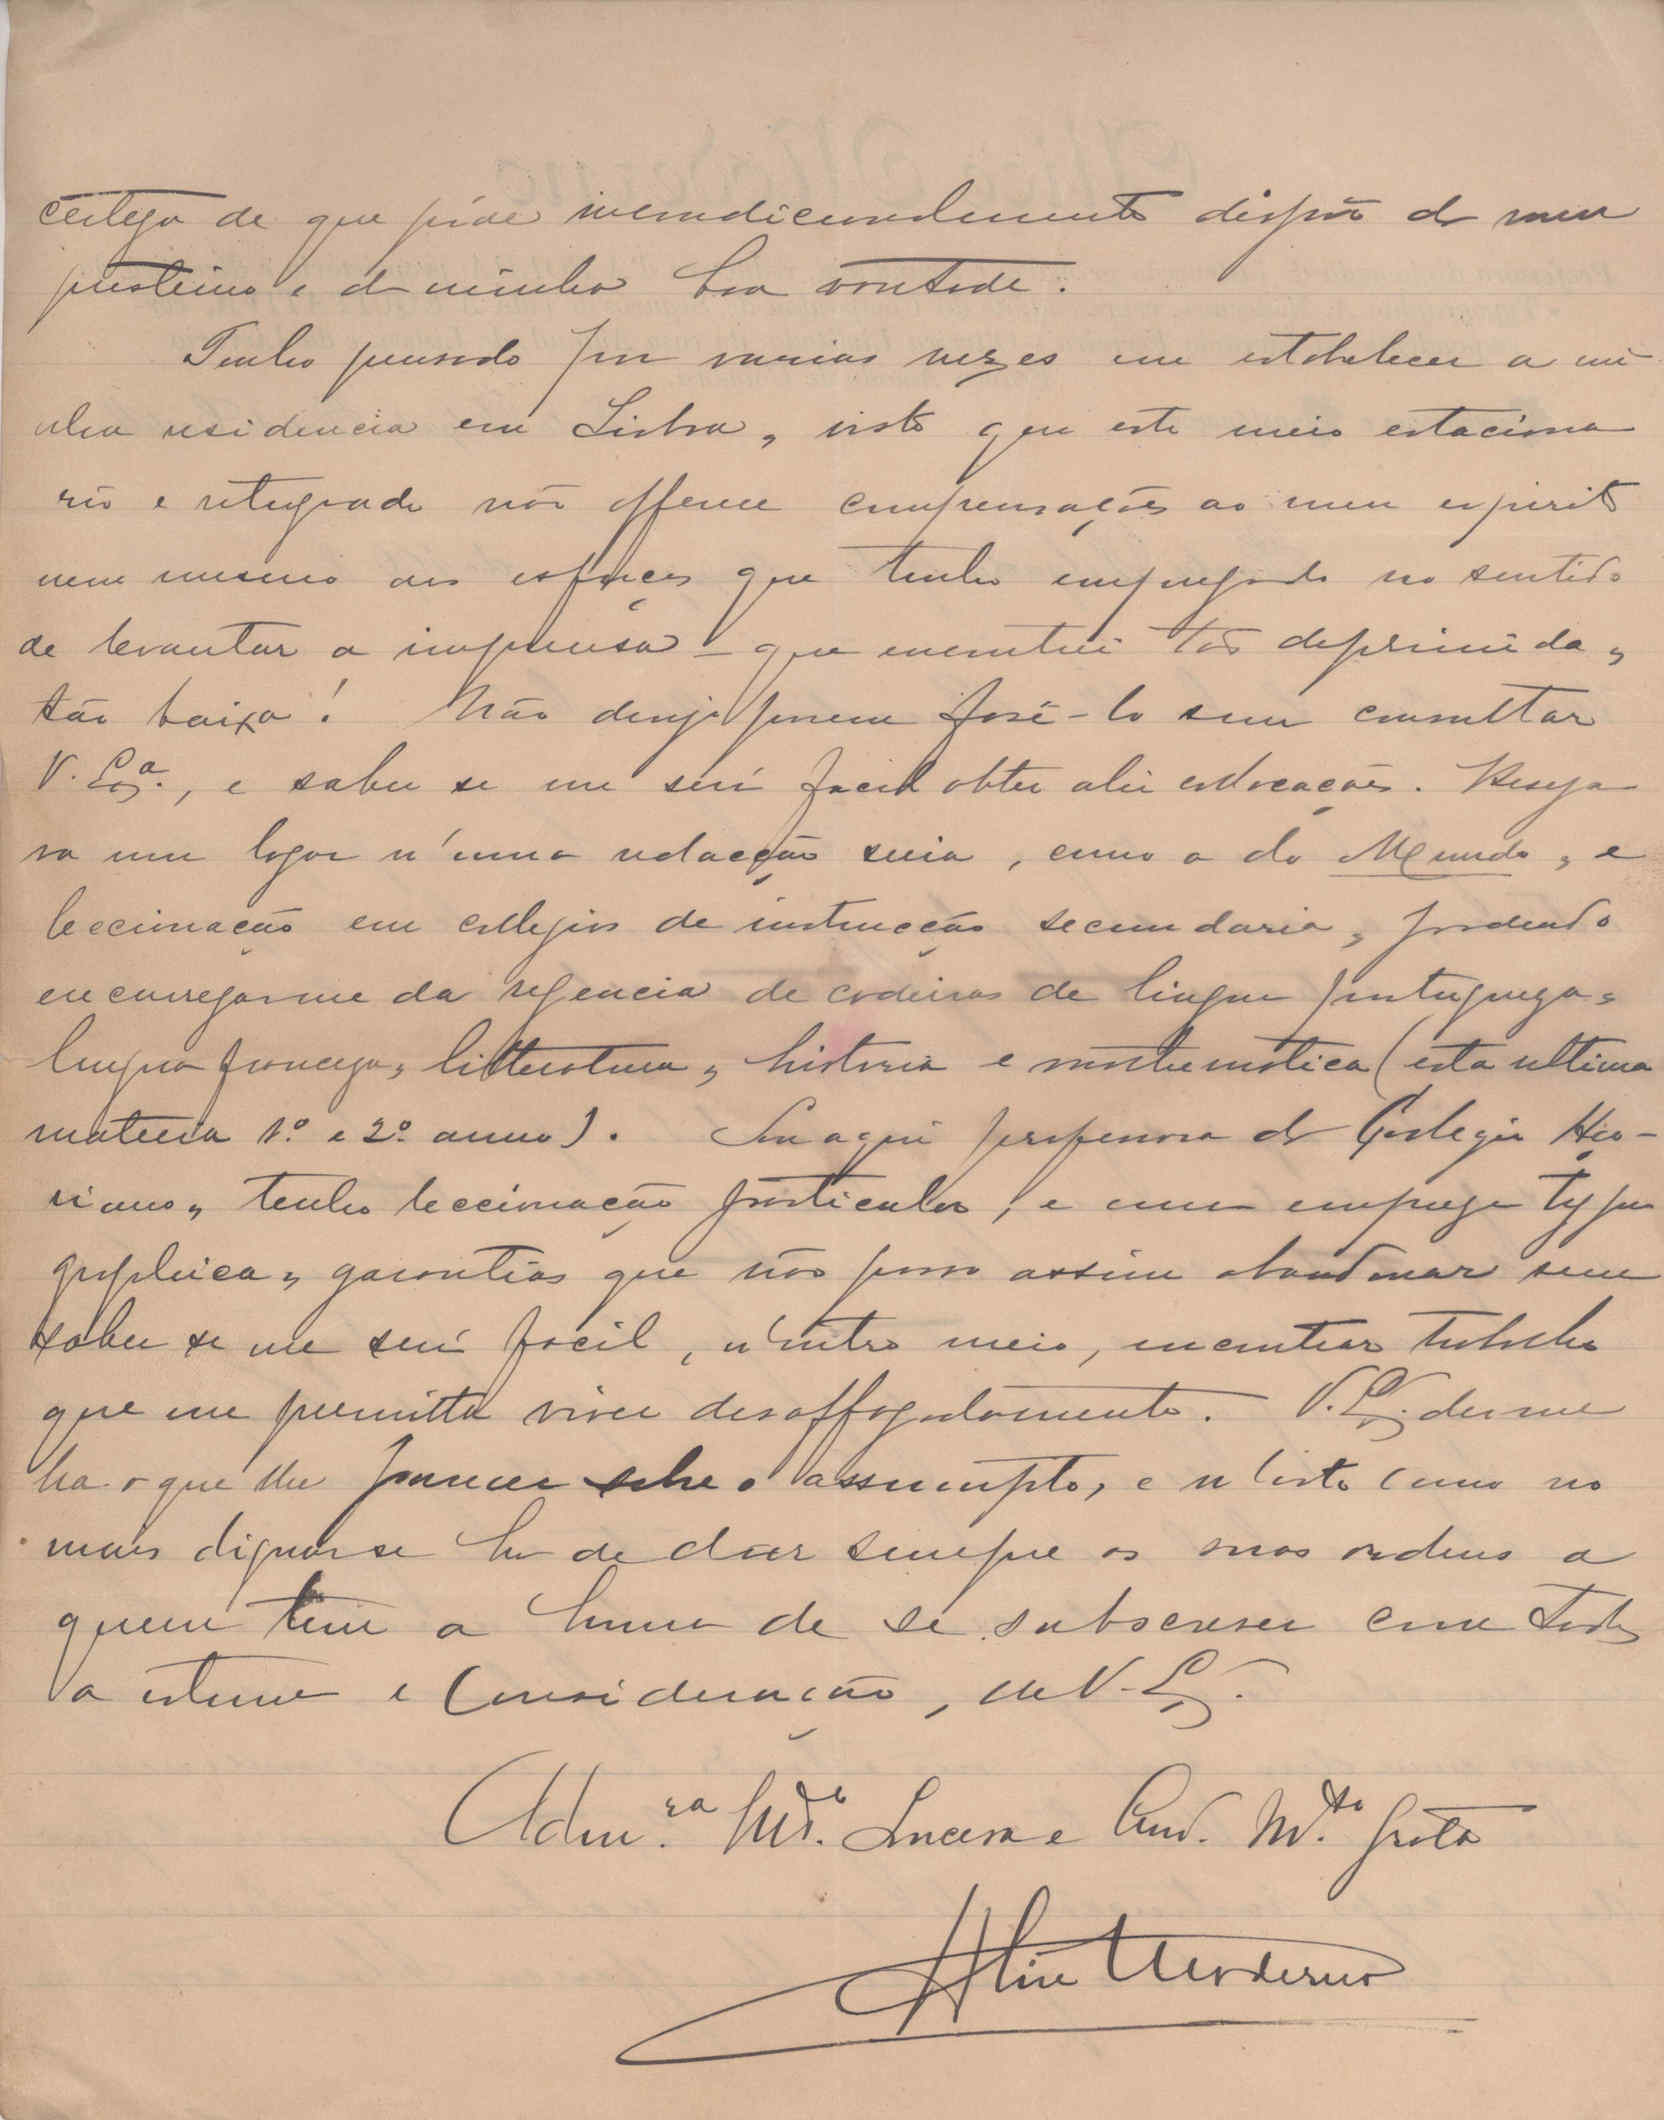 certeza de que póde incondicionalmente dispôr do meu
prestimo e da minha boa vontade.
Tenho pensado por varias vezes em estabelecer a mi
nha residencia em Lisboa, visto que este meio estaciona
rio e retrogrado não offerece compensações ao meu espirito
nem mesmo aos esforços que tenho empregado no sentido
de levantar a imprensa – que encontrei tão deprimida,
tão baixa! Não desejo porem fazê-lo sem consultar
V. Ex.ª, e saber se me será facil obter ahi collocações. Deseja
va um logar n'uma redacção seria, como a do Mundo, e
leccionação em collegios de instrucção secundaria, podendo
encarregar-me da regencia de cadeiras de lingua portugueza,
lingua franceza, litteratura, historia e mathematica (esta ultima
materia 1.º e 2.º anno). Sou aqui professora do Collegio
tenho leccionação particular, e uma empreza typo
graphica, garantias que não posso assim abandonar sem
saber se me será facil, n'outro meio, encontrar trabalho
que me permitta viver desaffogadamente. V. Ex.ª dir-me
ha o que lhe parecer sobre o assumpto, e n'isto como no
mais dignar-se ha de dar sempre as suas ordens a
quem tem a honra de se subscrever com toda
a estima e consideração, de V. Ex.ª
Adm.ra Mt.º Sincera e Crd. Mt.º Grata
Alice Moderno